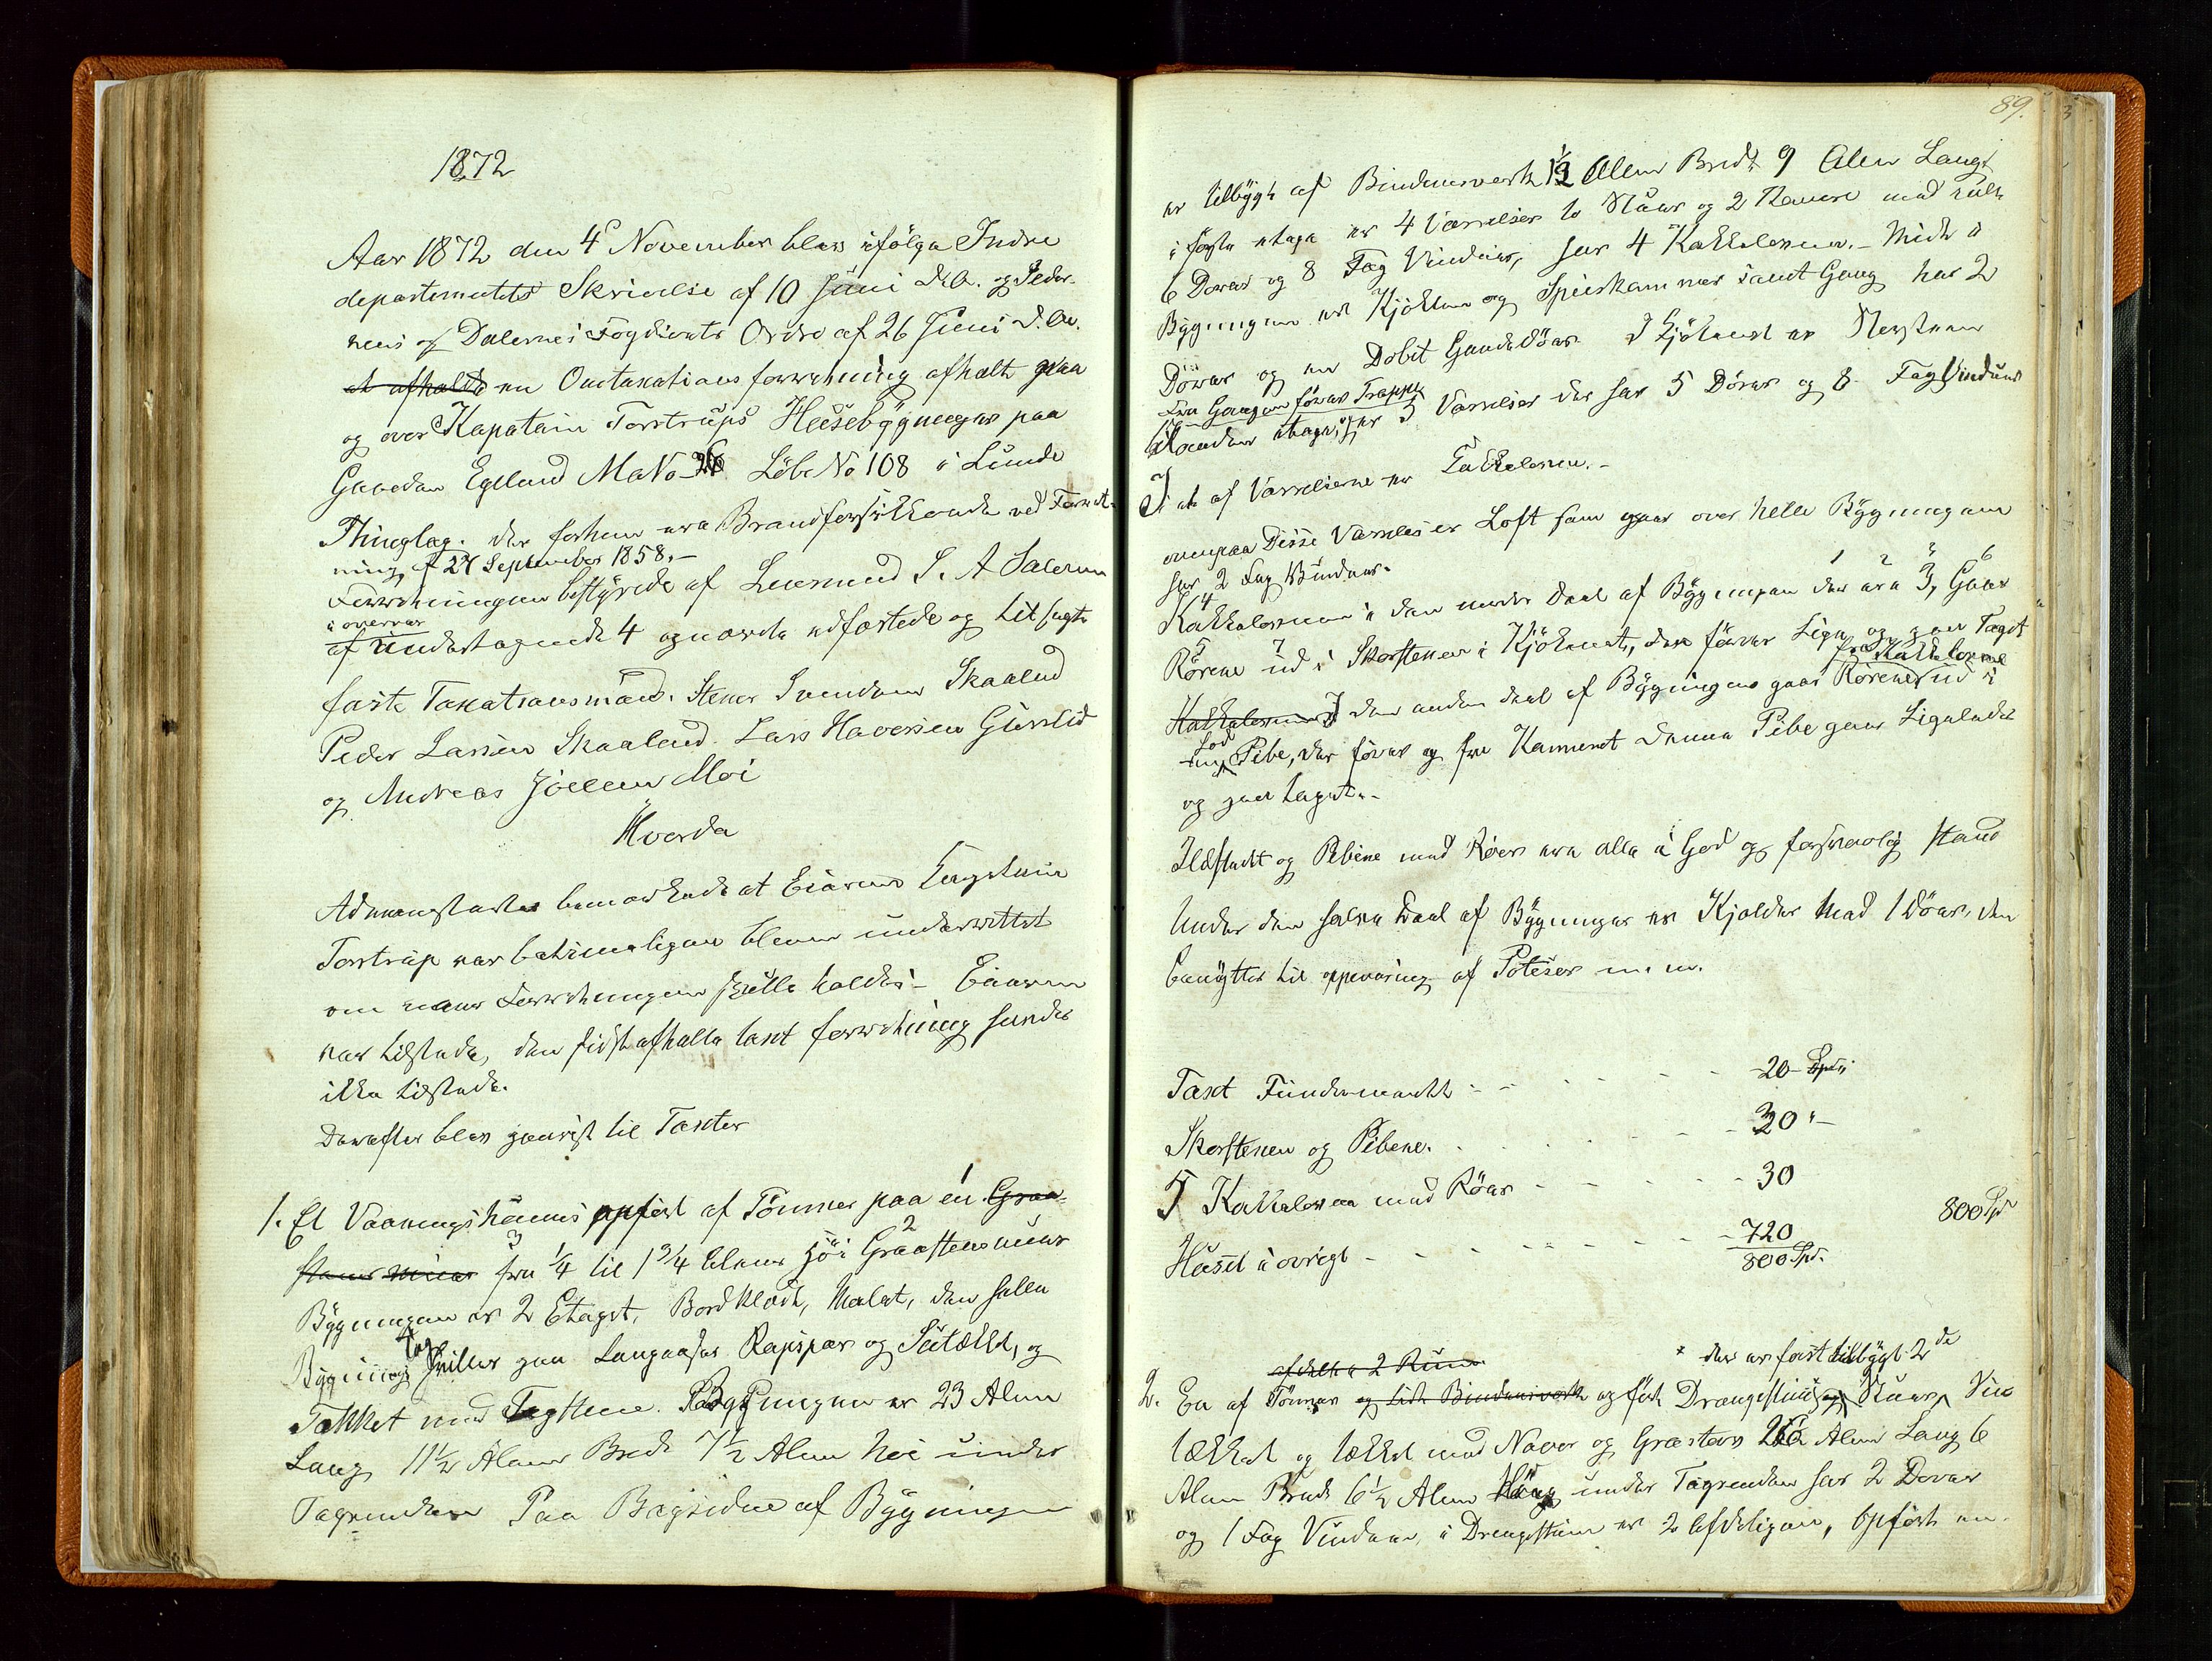 1872
Aar 1872 den 4 November blev ifölge Indre
departementets Skrivelse af 10 Juni d.A. og Jeder-
rens og Dalernes Fogdirets Ordre af 26 Juni d. A.
at afholde en Omtaxationsforretning afholt paa
og over Kapatain Torstrups Huusebygninger paa
Gaarden Egeland MaNo 36 Löbe No 108 i Lunde
Thinglag. der forhen ere Brandforsikkrede ved Forret-
ning af 27 September 1858.-
Forretningen bestyrede af Lensmand S. A Salesen
i overvær
af undertegnede 4 opnævnte edfæstede og tilsagte
faste Taxationsmænd. Stener Svendsen Skaaland
Peder Larsen Skaaland. Lars Haversen Gursli
og Andreas Joelsen Moi
Hvorda
Administrator bemærkede at Eieren Kapetain
Torstrup var betimeligen bleven underrettet
om naar Forretningen skulle holdes - Eieren
var tilstede, den sidst afholte taxt forretning fandtes
ikke tilstede.
Derefter blev gaaet til Taxter
1. Et Vaaningshuus opfört af Tömmer paa en 1 Graa-
steens muur fra 3 1/4 til 1 3/4 Alens höi 2 Graastensmuur
Bygningen er 2 Etaget, Bordklædt, Malet, den halve
Bygning 4 tag hviler paa Langaaser Rapsper og Sutækket, og
Tækket med Tagstene. Bygningen er 23 Alen
Lang 11½ Alens Bred 7½ Alen höi under
Tagrenden Paa Bagsiden af Bygningen
89.
er tilbygt af Bindingsverk 1½ Alen Bredt 9 Alen Langt
i förste etage er 4 Værelser to Stuer og 2 Kamere med
6 Dörer og 8 Fag Vinduer, har 4 Kakkelovne.- Midt i
Bygningen er Kjökken og Spiiskammer samt Gang har 2
Dörer og en Dobit Gandedör. I Kjökkenet er Skorsteen
Fra Gangen förer Trappe
til anden etage, og er 5 Værelser der har 5 Dörer og 8 Fag Vinduer
I et af Værelserne er Kakkelovn.-
ovenpaa Disse Værelser er Loft som gaar over hele Bygningen
har 2 Fag Vinduer.
Kakkelovnene 4 i den nordre Deel af Bygningen der ere 1 2 3 3, Gaar 6
Rörene 5 ud 7 i Skorstenen i Kjökkenet, der förer Lige op gjen Taget
Kakkelovnene I den anden deel af Bygningen gaar Rörene fra Kakkelovne ud i
en Lod Pibe, der förer og fra Kammeret denne Pibe gaar Ligeledes
og gjen taget.-
Ildstedet og Piberne med Röer ere alle i God og forsvarlig Stand
Under den halve Deel af Bygningen er Kjelder med 1 Döer, der
benyttes til oppevaring af Poteter m. m.
Taxt Fundamentt - - - - - - 20 Spd
Skorstenen og Piberne. - - - - - 30 "
5 Kakkelovne med Röer - - - - - 30
Huset i övrigt - - - - - - - 720
800 Spd. 800 Spd
afdelt i 2 Rum
* der er fast tilbygt 2de
2. En af Tömmer og lidt Bindingsverk opfört Drengestue og Stuer, Sut
tækket og tækket med Never og Græstorv 26 Alen Lang 6
Alen Bred 6½ Alen Höi under Tagrenden har 2 Dörer
og 1 Fag Vinduer, i Drengestuen er 2 Afdelinger, Opfört en